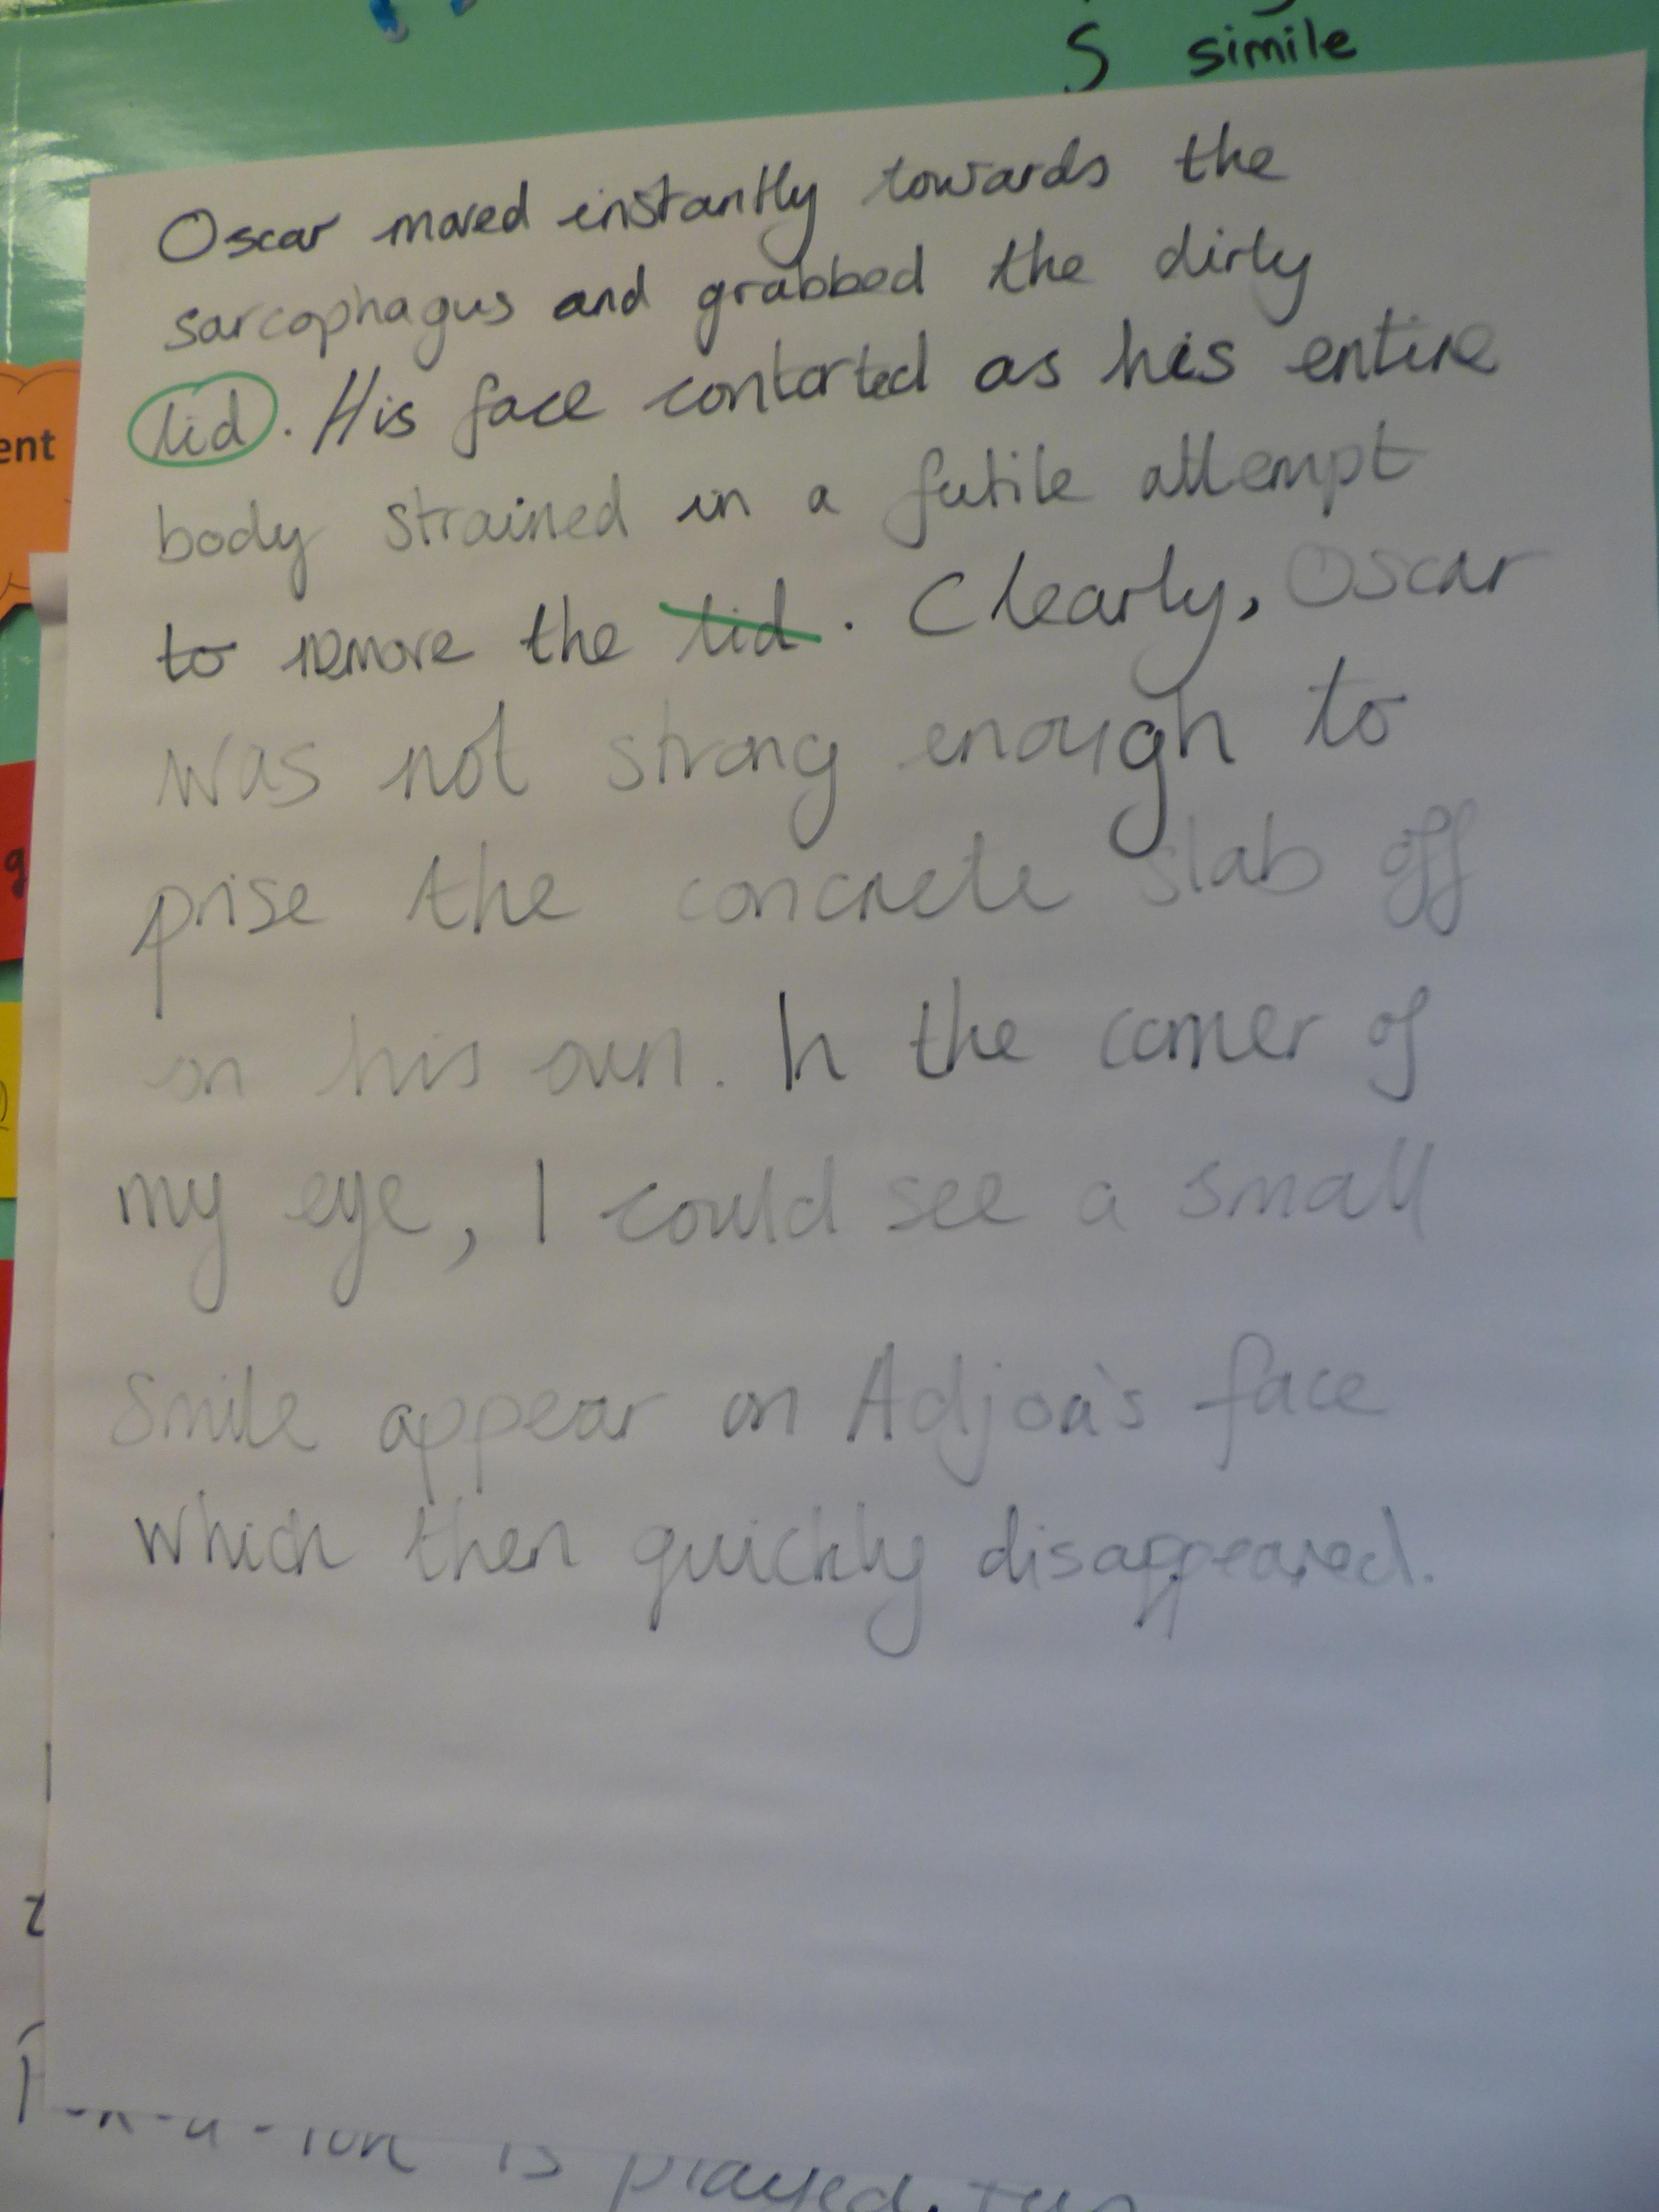 S simile
Oscar moved instantly towards the
sarcophagus and grabbed the dirty
lid. His face contorted as his entire
body strained in a futile attempt
to remove the lid. Clearly, Oscar
was not strong enough to
prise the concrete slab off
on his own. In the corner of
my eye, I could see a small
smile appear on Adjoa's face
which then quickly disappeared.
ent
g
is played.